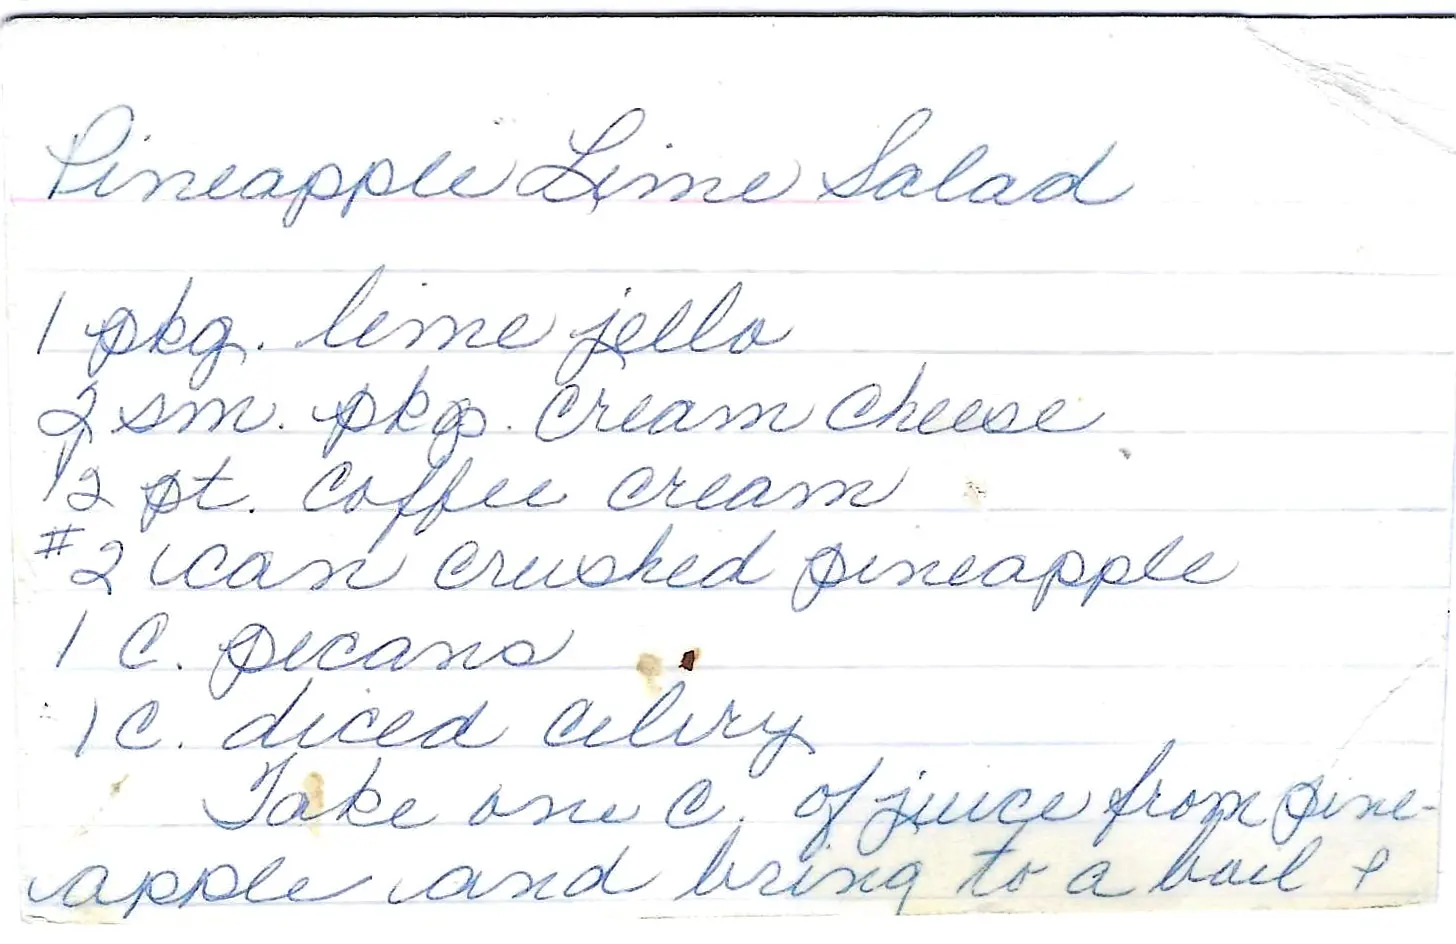 Pineapple Lime Salad
1 pkg. lime jello
2 sm. pkgs. cream cheese
1/2 pt. coffee cream
#2 can crushed pineapple
1 C. pecans
1 C. diced celery
Take one C. of juice from pine-
apple and bring to a boil &